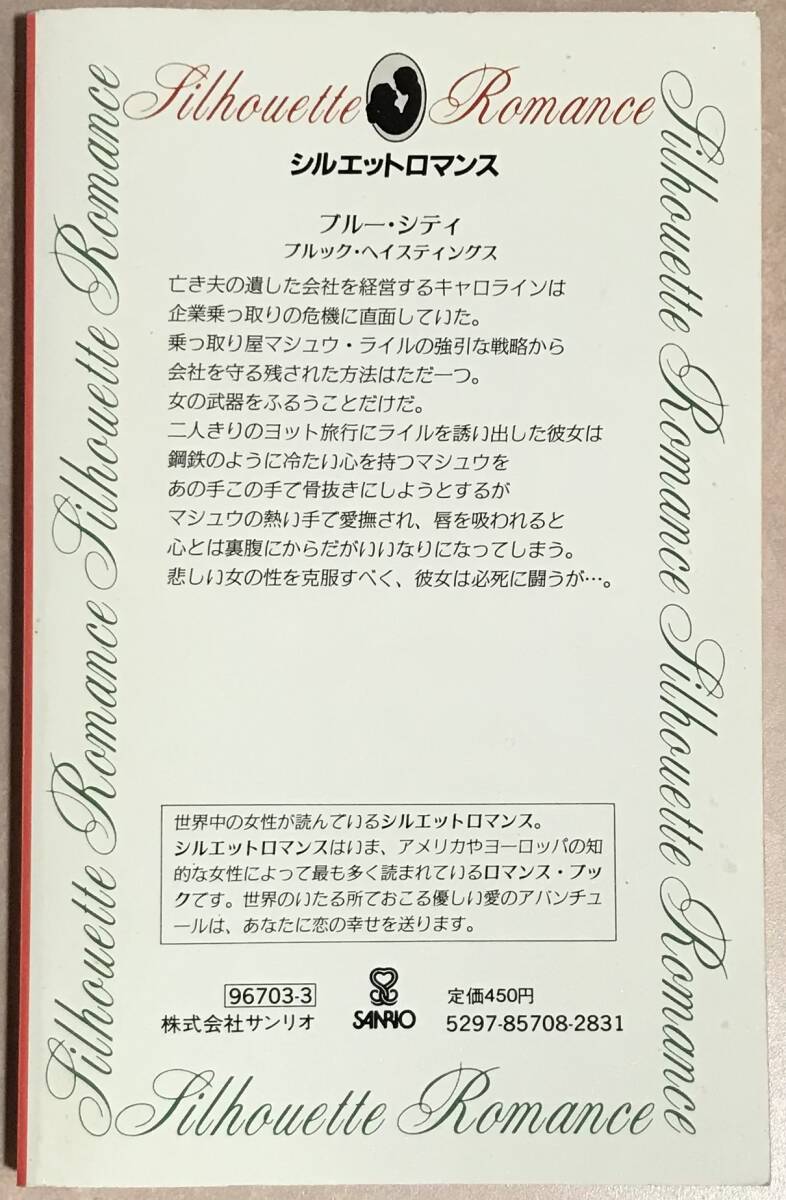 Silhouette Romance
シルエットロマンス
ブルー・シティ
ブルック・ヘイスティングス
亡き夫の遺した会社を経営するキャロラインは
企業乗っ取りの危機に直面していた。
乗っ取り屋マシュウ・ライルの強引な戦略から
会社を守る残された方法はただ一つ。
女の武器をふるうことだけだ。
二人きりのヨット旅行にライルを誘い出した彼女は
鋼鉄のように冷たい心を持つマシュウを
あの手この手で骨抜きにしようとするが
マシュウの熱い手で愛撫され、唇を吸われると
心とは裏腹にからだがいいなりになってしまう。
悲しい女の性を克服すべく、彼女は必死に闘うが…。
世界中の女性が読んでいるシルエットロマンス。
シルエットロマンスはいま、アメリカやヨーロッパの知
的な女性によって最も多く読まれているロマンス・ブッ
クです。世界のいたる所でおこる優しい愛のアバンチュ
ールは、あなたに恋の幸せを送ります。
96703-3
株式会社サンリオ
SANRIO
定価450円
5297-85708-2831
Silhouette Romance Silhouette Romance
Silhouette Romance Silhouette Romance
Silhouette Romance